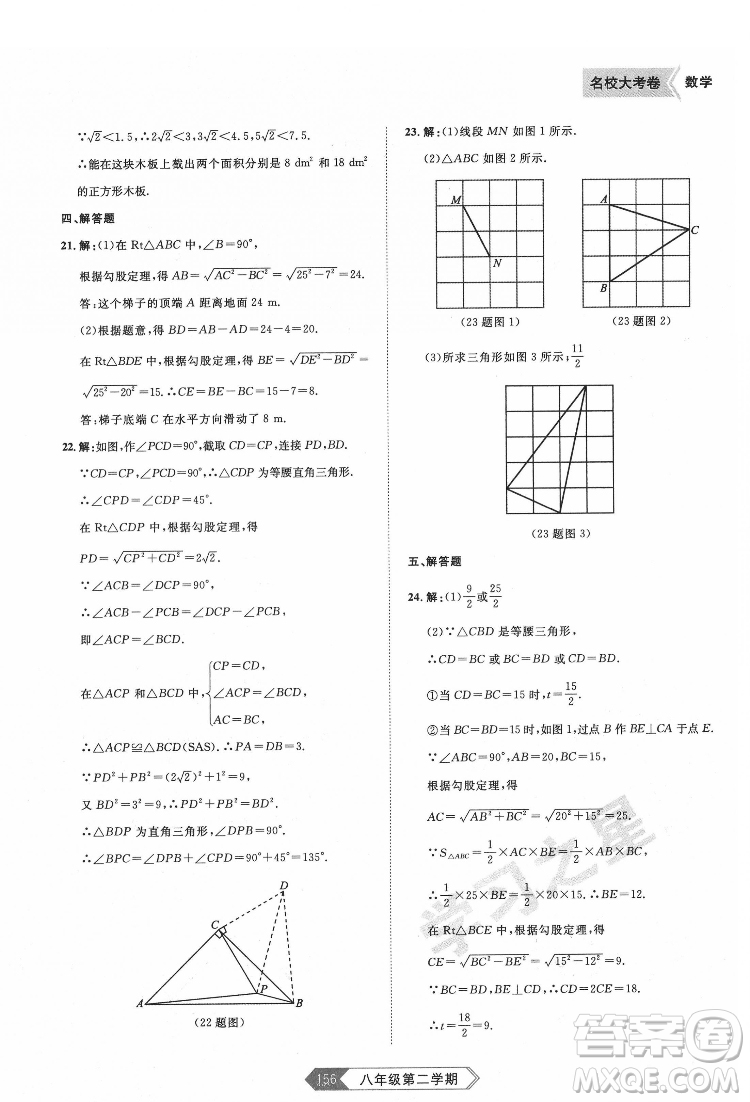 名校大考卷 数学
∵√2＜1.5,∴2√2＜3,3√2＜5,2√2+3√2＜7.5.
∴能在这块木板上截出两个面积分别是 8 dm² 和 18 dm²
的正方形木板.
四、解答题
21.解:(1)在 Rt△ABC 中,∠B=90°,
根据勾股定理,得 AB=√(AC²-BC²)=√(25²-7²)=24.
答:这个梯子的顶端 A 距离地面 24 m.
(2)根据题意,得 BD=AB-AD=24-4=20.
在 Rt△BDE 中,根据勾股定理,得 BE=√(DE²-BD²)=
√(25²-20²)=15.∴CE=BE-BC=15-7=8.
答:梯子底端 C 在水平方向滑动了 8 m.
22.解:如图,作∠PCD=90°,截取 CD=CP,连接 PD,BD.
∵CD=CP,∠PCD=90°,∴△CDP 为等腰直角三角形.
∴∠CPD=∠CDP=45°.
在 Rt△CDP 中,根据勾股定理,得
PD=√(CP²+CD²)=2√2.
∵∠ACB=∠PCD=90°,
∴∠ACB-∠BCP=∠DCP-∠BCP.
即∠ACP=∠BCD.
在△ACP 和△BCD 中,{CP=CD,
∠ACP=∠BCD,
AC=BC,
∴△ACP≌△BCD(SAS).∴PA=DB=3.
∵PD²+PB²=(2√2)²+1²=9,
又 BD²=3²=9,∴PD²+PB²=BD².
∴△BDP 为直角三角形,∠BPD=90°.
∴∠BPC=∠DPB+∠CPD=90°+45°=135°.
D
C
P
A
B
(22题图)
23.解:(1)线段 MN 如图 1 所示.
(2)△ABC 如图 2 所示.
M
N
A
C
B
(23题图1) (23题图2)
(3)所求三角形如图 3 所示;11/2
(23题图3)
五、解答题
24.解:(1)9/2或25/2
(2)∵△CBD 是等腰三角形,
∴CD=BC 或 BC=BD 或 BD=CD.
①当 CD=BC=15 时,t=15/2.
②当 BC=BD=15 时,如图 1,过点 B 作 BE⊥CA 于点 E.
∵∠ABC=90°,
根据勾股定理,得
AC=√(AB²+BC²)=√(20²+15²)=25.
∵S△ABC=1/2×AC×BE=1/2×AB×BC,
∴1/2×25×BE=1/2×20×15.∴BE=12.
在 Rt△BCE 中,根据勾股定理,得
CE=√(BC²-BE²)=√(15²-12²)=9.
∵BC=BD,BE⊥CD,∴CD=2CE=18.
∴t=18/2=9.
学习之星
答案圈
156 八年级第二学期